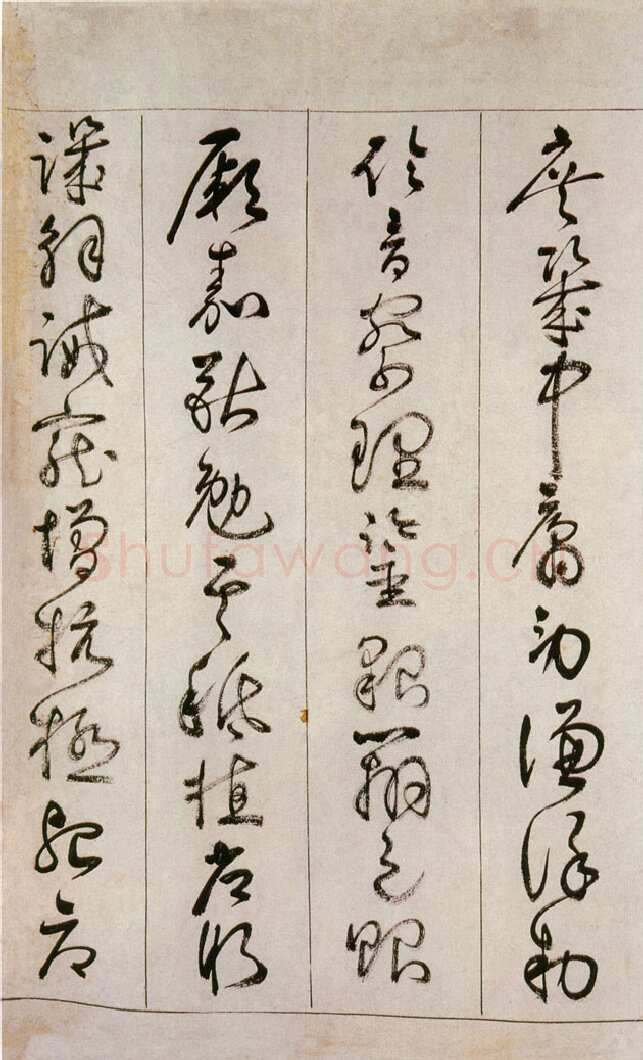 庶幾中庸勞謙謹勅
聆音察理鑒貌辨色貽
厥嘉猷勉其祗植省躬
譏誡寵增抗極殆辱
Shufawang.CN